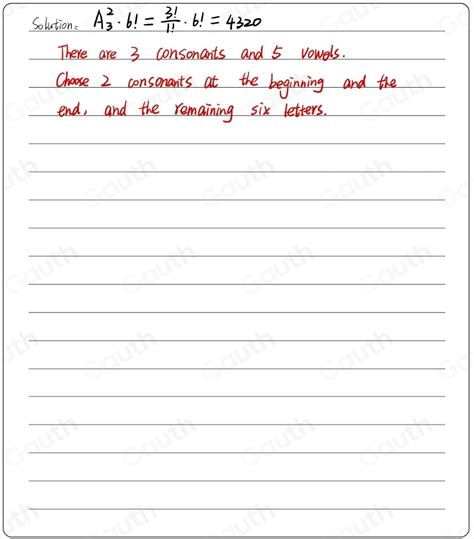 Solution: A₃² · 6! = 3!/1! · 6! = 4320
There are 3 consonants and 5 vowels.
Choose 2 consonants at the beginning and the
end, and the remaining six letters.
Gauth